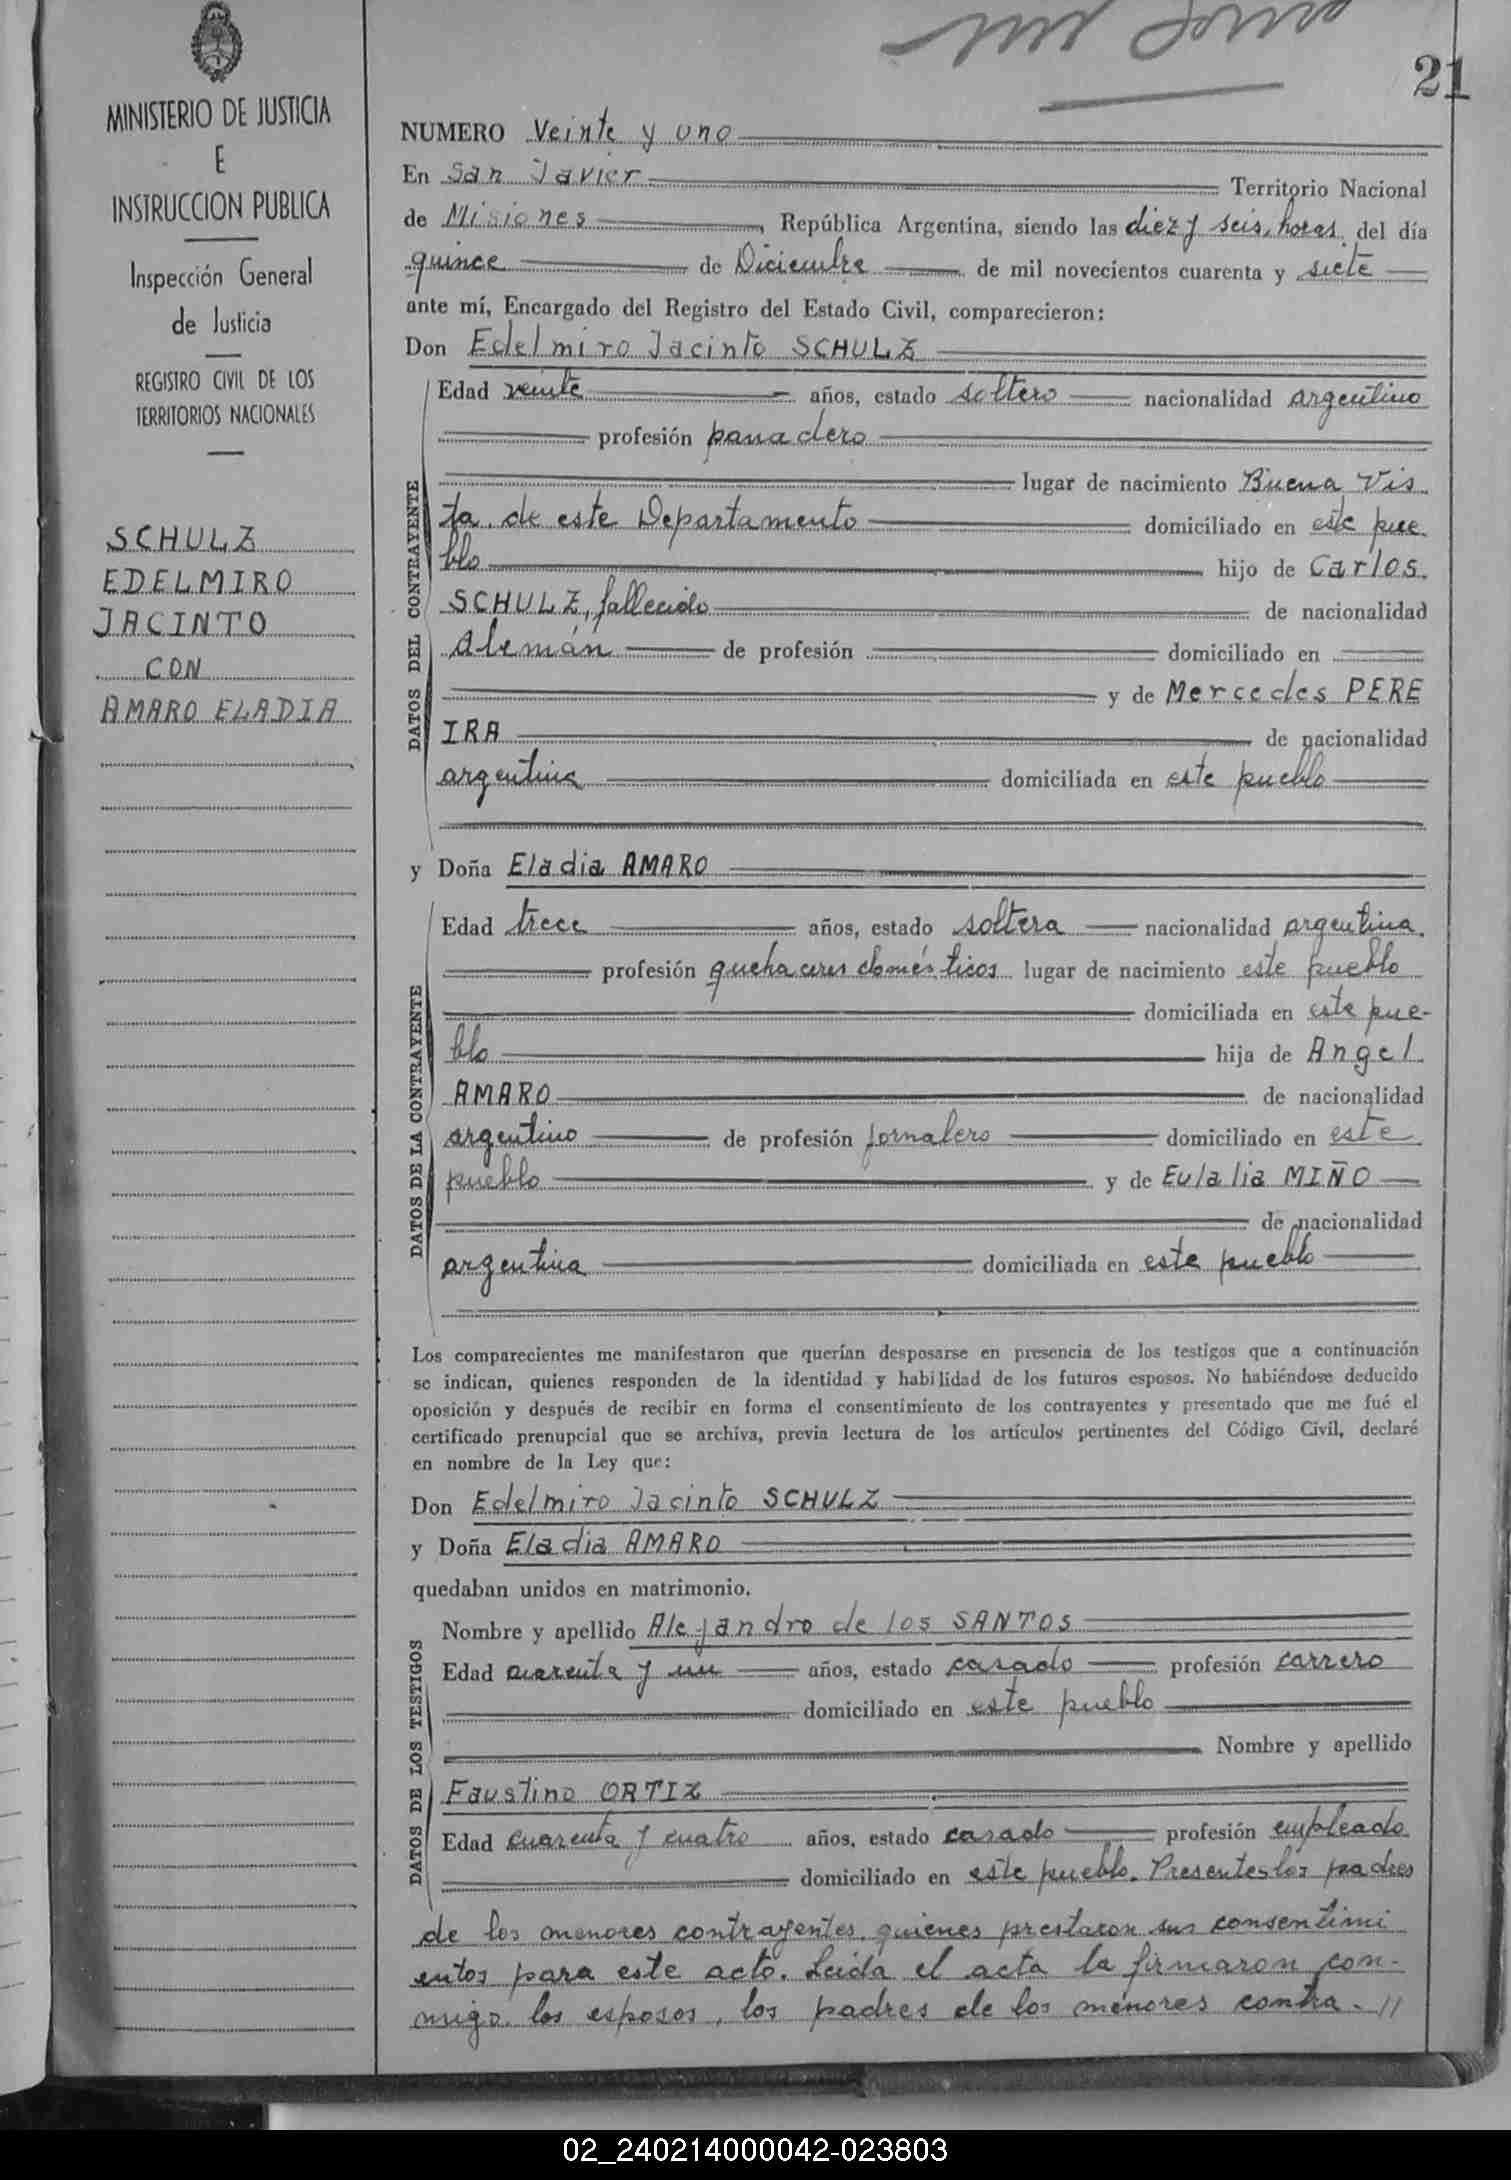 21
MINISTERIO DE JUSTICIA
E
INSTRUCCION PUBLICA
Inspección General
de Justicia
REGISTRO CIVIL DE LOS
TERRITORIOS NACIONALES
SCHULZ
EDELMIRO
JACINTO
CON
AMARO ELADIA
NUMERO Veinte y uno
En San Javier Territorio Nacional
de Misiones, República Argentina, siendo las diez y seis, horas del día
quince de Diciembre de mil novecientos cuarenta y siete
ante mí, Encargado del Registro del Estado Civil, comparecieron:
Don Edelmiro Jacinto SCHULZ
DATOS DEL CONTRAYENTE
Edad veinte años, estado soltero nacionalidad argentino
profesión panadero
lugar de nacimiento Buena Vis
ta de este Departamento domiciliado en este pue
blo hijo de Carlos
SCHULZ, fallecido de nacionalidad
Alemán de profesión domiciliado en
y de Mercedes PERE
IRA de nacionalidad
argentina domiciliada en este pueblo
y Doña Eladia AMARO
DATOS DE LA CONTRAYENTE
Edad trece años, estado soltera nacionalidad argentina
profesión quehaceres domésticos lugar de nacimiento este pueblo
domiciliada en este pue-
blo hija de Angel
AMARO de nacionalidad
argentino de profesión jornalero domiciliado en este
pueblo y de Eulalia MIÑO
de nacionalidad
argentina domiciliada en este pueblo
Los comparecientes me manifestaron que querían desposarse en presencia de los testigos que a continuación
se indican, quienes responden de la identidad y habilidad de los futuros esposos. No habiéndose deducido
oposición y después de recibir en forma el consentimiento de los contrayentes y presentado que me fué el
certificado prenupcial que se archiva, previa lectura de los artículos pertinentes del Código Civil, declaré
en nombre de la Ley que:
Don Edelmiro Jacinto SCHULZ
y Doña Eladia AMARO
quedaban unidos en matrimonio.
DATOS DE LOS TESTIGOS
Nombre y apellido Alejandro de los SANTOS
Edad cuarenta y un años, estado casado profesión carrero
domiciliado en este pueblo
Nombre y apellido
Faustino ORTIZ
Edad cuarenta y cuatro años, estado casado profesión empleado
domiciliado en este pueblo. Presentes los padres
de los menores contrayentes, quienes prestaron sus consentimi
entos para este acto. Leida el acta la firmaron con-
migo, los esposos, los padres de los menores contra- //
02_240214000042-023803